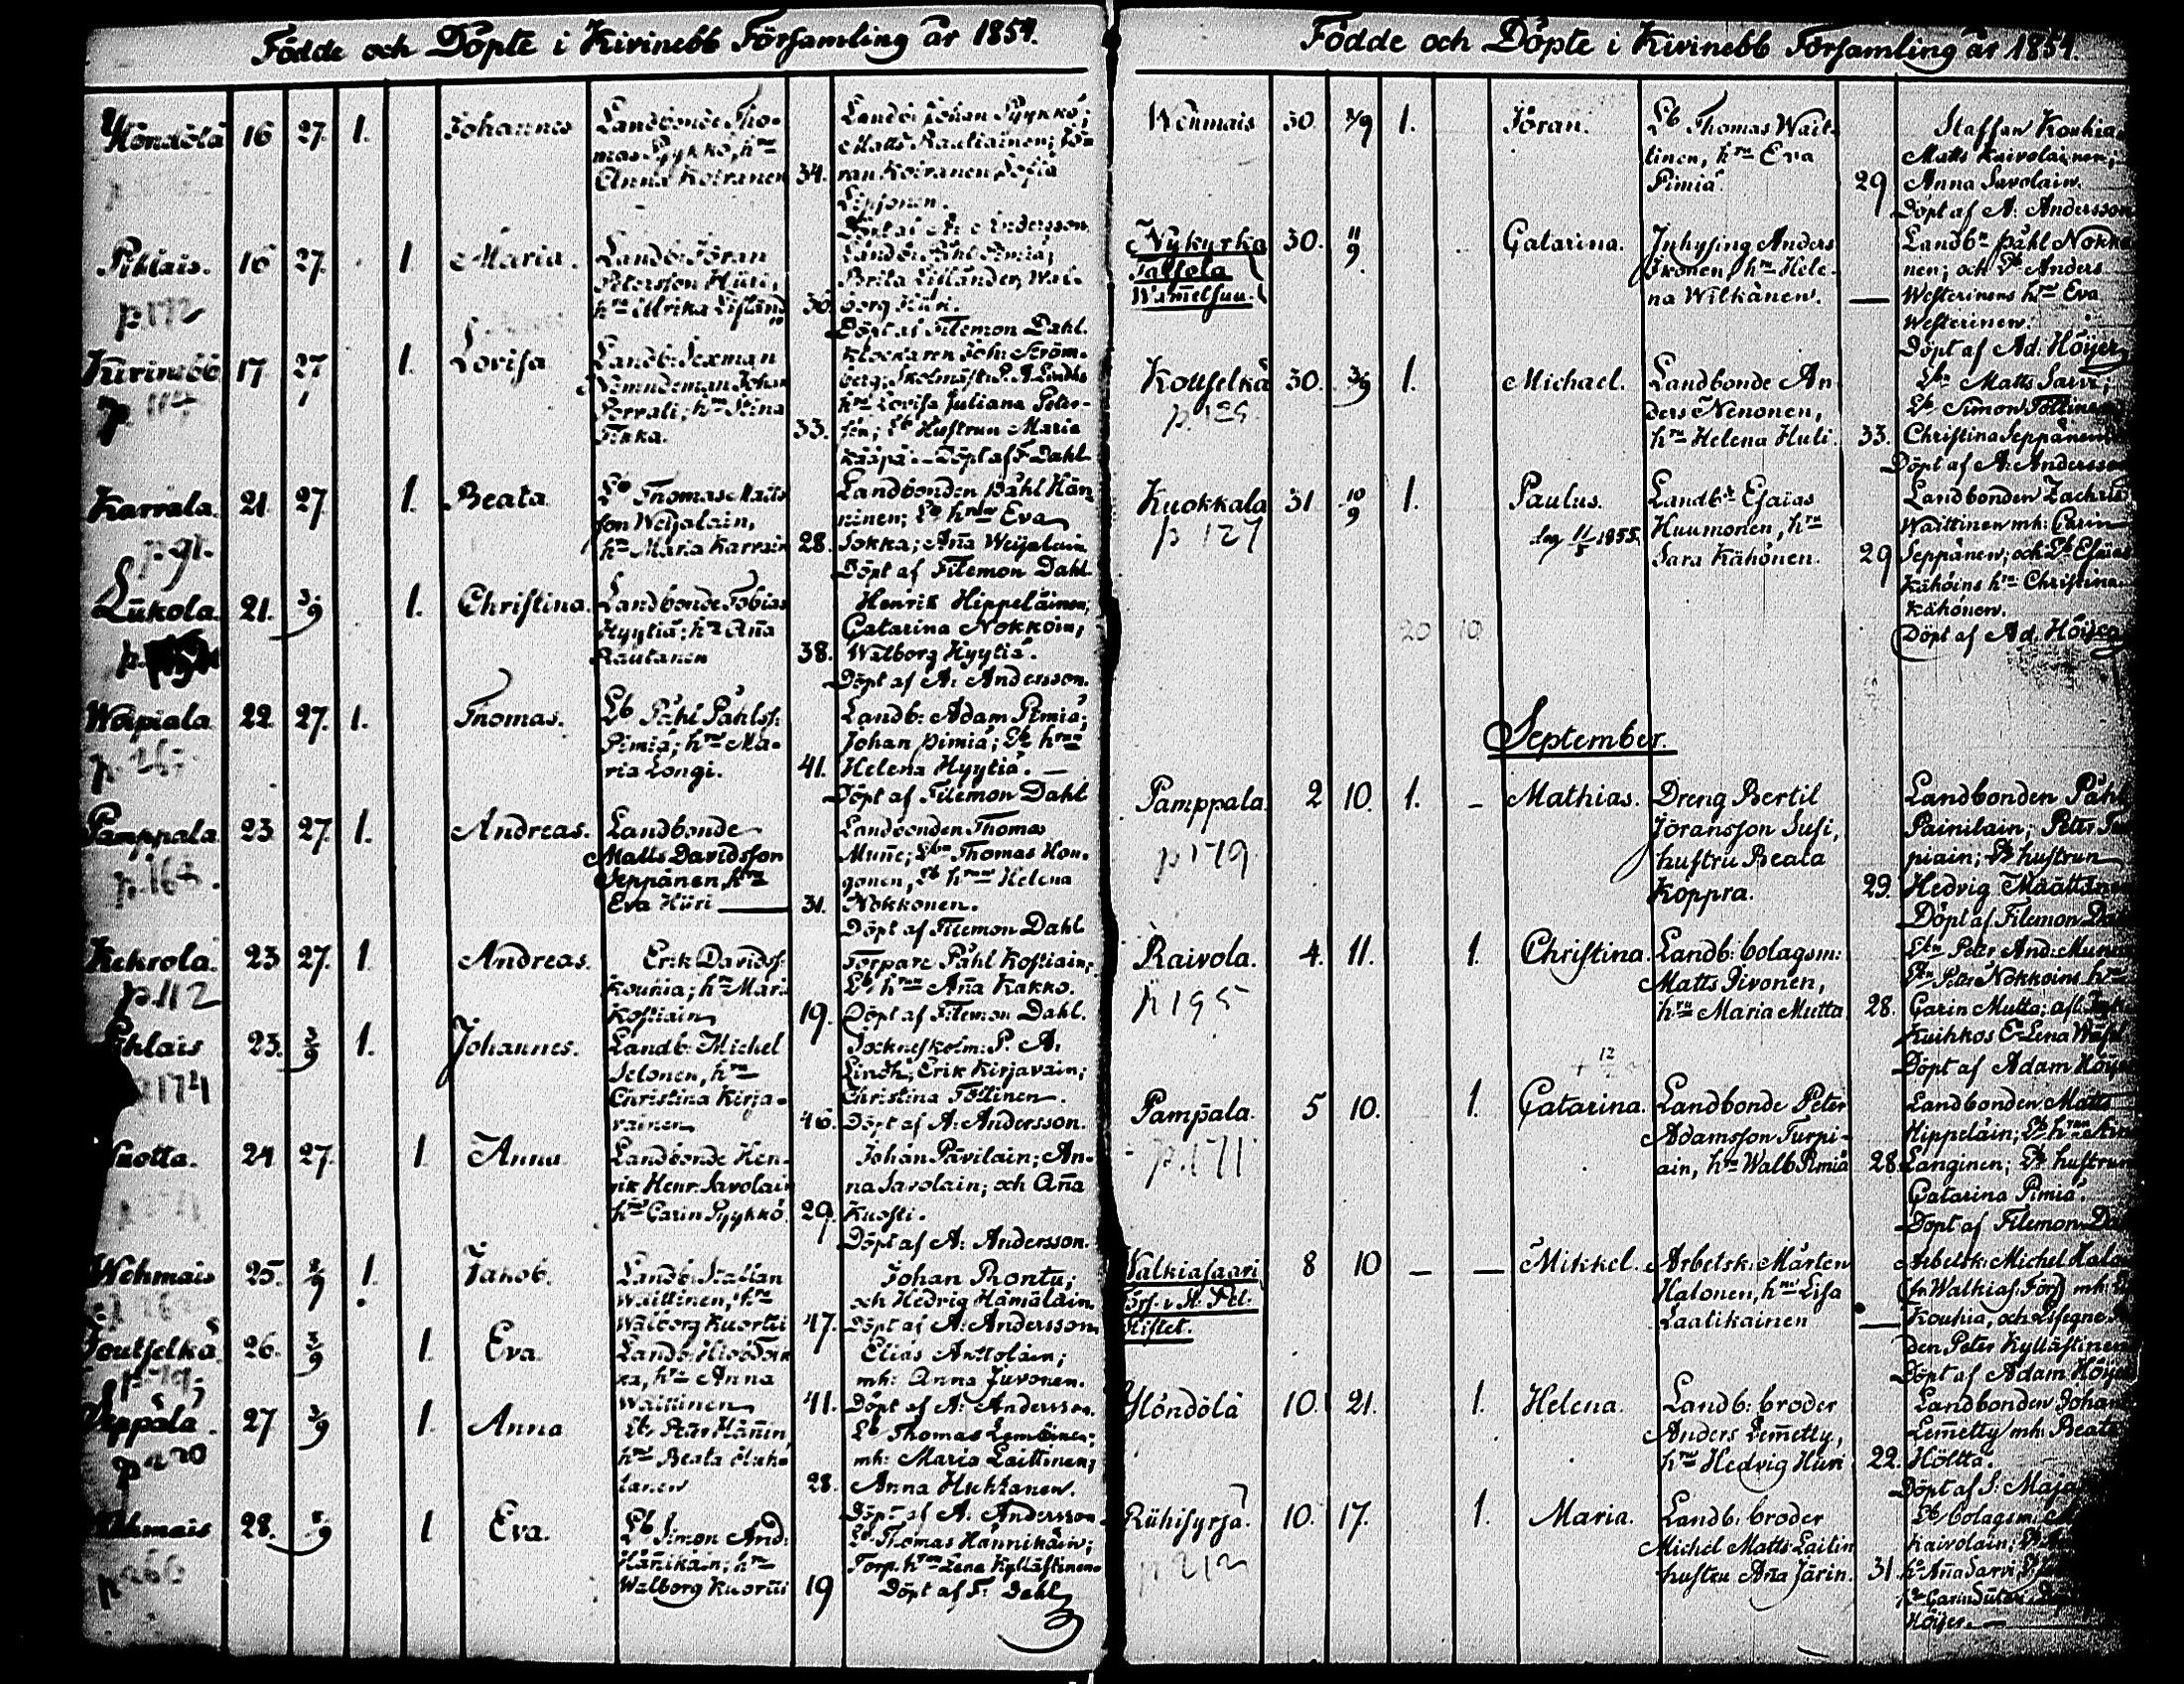 Födde och Döpte i Kivinebb Församling år 1854.
Yllöndölä 16 27. 1. Johannes Landbonde Tho-
mas Pyykkö, hru
Anna Koiranen 34.
Landb: Johan Pyykkö;
Matts Rautiainen; Jö-
ran Koiranen Sofia
Sipponen.
Döpt af A: Andersson.
Pihlais. 16 27. 1. Maria. Landb: Jöran
Petersson Hüri,
hru Ulrika Lisländ 30.
p 172
Landb: Påhl Pimiä;
Brita Lisländer, Wal-
borg Hüri.
Döpt af Filemon Dahl.
Kivinebb 17 27 1. Lovisa Landb: Sexman
Nemndeman Johan
Porvali; hru Stina
Tikka. 33.
p. 117
Klockaren Joh: Ström-
berg; Skolmäst: P. A. Lindhs
hru Lovisa Juliana Peter-
sen; Lb Hustrun Maria
Kääpä. Döpt af F. Dahl
Karrala. 21 27. 1. Beata Lb Thomas Matts
son Weijalain,
hru Maria Karrain 28.
p. 91.
Landbonden Påhl Hän
ninen; Lb hru Eva
Sokka; Aña Weijalain
Döpt af Filemon Dahl.
Lükola. 21. 3/9 1. Christina. Landbonde Tobias
Hyytiä; hru Aña
Rautanen 38.
Henrik Hippeläinen;
Catarina Nokkoin,
Walborg Hyytiä.
Döpt af A: Andersson.
Woipiala 22. 27. 1. Thomas. Lb Påhl Påhlss:
Pimiä; hru Ma-
ria Longi. 41.
Landb: Adam Pimiä;
Johan Pimiä; Lb hrun
Helena Hyytiä. —
Döpt af Filemon Dahl
Pamppala 23 27. 1. Andreas. Landbonde
Matts Davidsson
Seppänen, hru
Eva Hüri — 31.
p. 168.
Landbonden Thomas
Muñe; Lbn Thomas Hon-
gonen, Lb hrun Helena
Nokkonen.
Döpt af Filemon Dahl
Kekrola. 23 27. 1. Andreas. Erik Davidss:
Kouhia; hru Mari
Kostiain 19.
p. 112
Torpare Påhl Kostiain;
Lb hrun Aña Kakko.
Döpt af Filemon Dahl.
Pihlais 23. 3/9 1. Johannes. Landb: Michel
Ilonen, hru
Christina Kirja-
vainen 46.
p 174
Sockneskolm: P. A.
Lindh; Erik Kirjavain;
Christina Töllinen.
Döpt af A: Andersson.
Kuotta. 24 27. 1 Anna Landbonde Hen-
rik Henr: Savolain
hru Carin Pyykkö 29.
Johan Pavilain; An-
na Savolain; och Aña
Kuosti.
Döpt af A: Andersson.
Wehmais 25. 3/9 1. Jakob. Landb: Staffan
Waittinen, hru
Walborg Kuortti 47.
Johan Rontu;
och Hedvig Hämäläin.
Döpt af A: Andersson.
Joutselkä 26. 3/9 1. Eva.
hru Anna
Waittinen 41.
Elias Anttolain;
mh: Anna Juvonen.
Döpt af A: Andersson.
Seppälä. 27 3/9 1. Anna
hru Beata
28.
p 220
Lb Thomas Lembinen;
mh: Maria Laittinen;
Anna Huhtanen.
Döpt af A: Andersson
Wehmais 28. 3/9 1 Eva. Lb Simon And:
Hänikäin; hru
Walborg Kuortti 19
p 266
Lb Thomas Hännikäin;
Torp. hrun Lena Kyllästinen
Döpt af F: Dahl
Födde och Döpte i Kivinebb Församling år 1854.
Wehmais 30. 3/9 1. Jöran. Lb Thomas Wait-
tinen, hru Eva
Pimiä. 29
Staffan Kouhia
Matts Kaivolainen;
Anna Savolain.
Döpt af A: Andersson
Nykyrka 30. 11/9 Catarina. Inhysing Anders
Ikonen, hru Hele-
na Wilkänen. —
Wamelsuu.
Landbn Påhl Nokko
nen; och Lb Anders
Westerinens hru Eva
Westerinen.
Döpt af Ad. Höijer
Kouselkä 30. 3/9 1. Michael. Landbonde An-
ders Nenonen,
hru Helena Huli. 33.
p. 125
Lbn Matts Sarvi;
Lb Simon Töllinen
Christina Seppänen
Döpt af A: Andersson
Kuokkala 31 10/9 1. Paulus. Landbn Esaias
Huumonen, hru
Sara Kähönen. 29
p 127
1855.
Landbonden Zachris
Waittinen mh: Carin
Seppänen; och Lb Esaias
Kähöins hru Christina
Kähönen.
Döpt af Ad. Höijer
20 10
September.
Pamppala. 2 10. 1. — Mathias. Dreng Bertil
Jöransson Susi,
hustru Beata
Koppra. 29.
p 179
Landbonden Påhl
Painilain; Peter Tur
piain; Lb hustrun
Hedvig Määttänen
Döpt af Filemon Dahl
Raivola. 4. 11. 1. Christina. Landb: bolagsm:
Matts Iivonen,
hru Maria Mutta 28.
p 195
Lbn Peter And: Munne
Lbn Peter Nokkoins hru
Carin Mutta;
Kuihkos E: Lena
Döpt af Adam Höijer
Pampala. 5 10. 1. Catarina. Landbonde Peter
Adamsson Turpi-
ain, hru Walb Pimiä 28.
p. 171
Landbonden Matts
Hippeläin; Lb hrun
Langinen; Lb hustrun
Catarina Pimiä.
Döpt af Filemon Dahl
Walkiasaari 8 10 — — Mikkel. Arbetsk: Mårten
Halonen, hru Lisa
Laatikainen —
Förs: i St: Pet:
Stiftet.
Arbetsk: Michel Halo
(fr Walkias: Förs) mh:
Kouhia, och Lifegne
den Peter Kyllästinen
Döpt af Adam Höijer
Yllöndölä 10. 21. 1. Helena. Landb: broder
Anders Lem̃etty,
hru Hedvig Hüri 22.
Landbonden Johan
Lem̃etty mh: Beata
Hölttä.
Döpt af S: Maja
Rühisyrjä. 10. 17. 1. Maria. Landb: broder
Michel Matts: Laitin
hustru Aña Järin. 31
p 212
Lb bolagsm:
Kaivolain;
hr Aña Sarvi;
Höijer. —